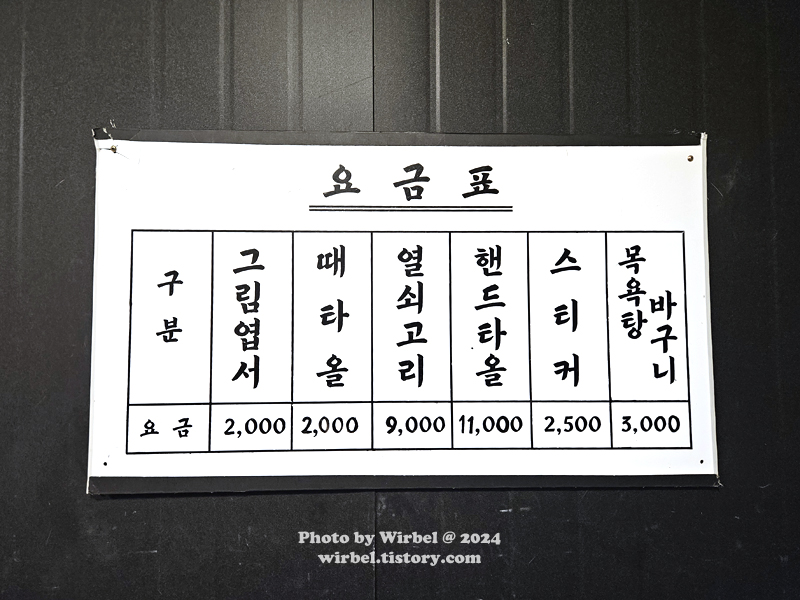 요금표
구분 그림엽서 때타올 열쇠고리 핸드타올 스티커 목욕탕바구니
요금 2,000 2,000 9,000 11,000 2,500 3,000
Photo by Wirbel @ 2024
wirbel.tistory.com